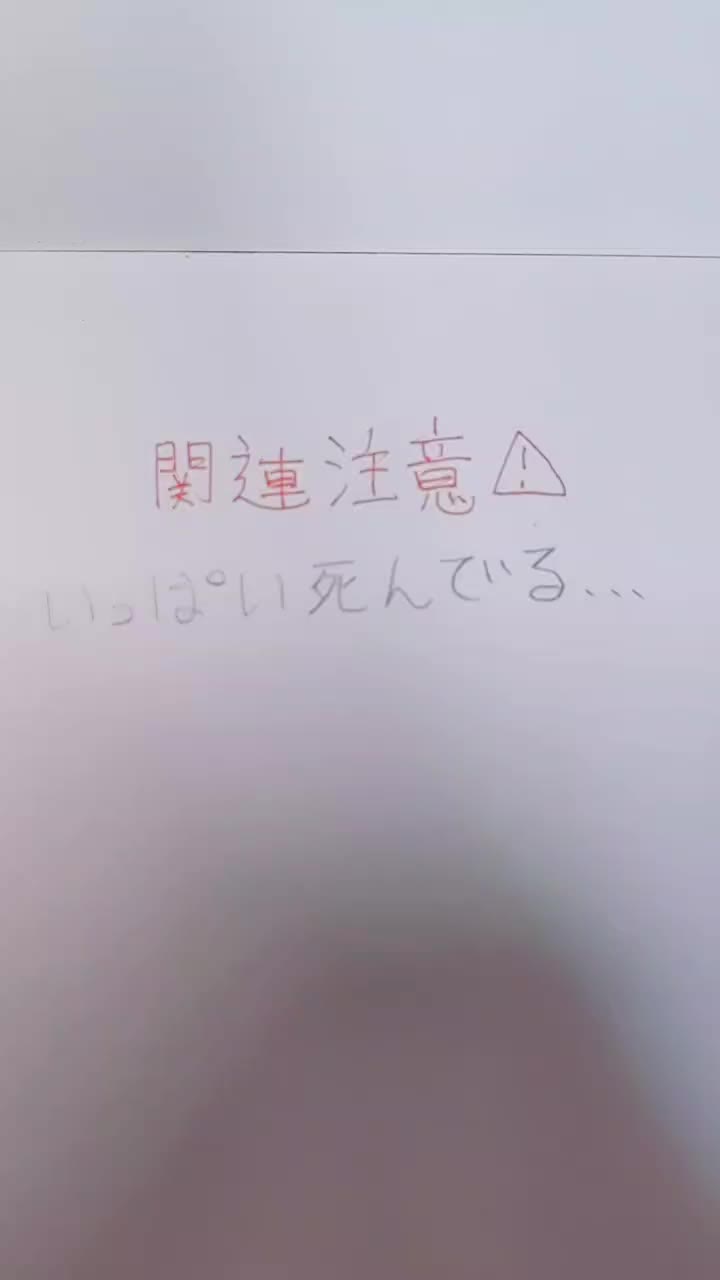 関連注意⚠
いっぱい死んでいる...